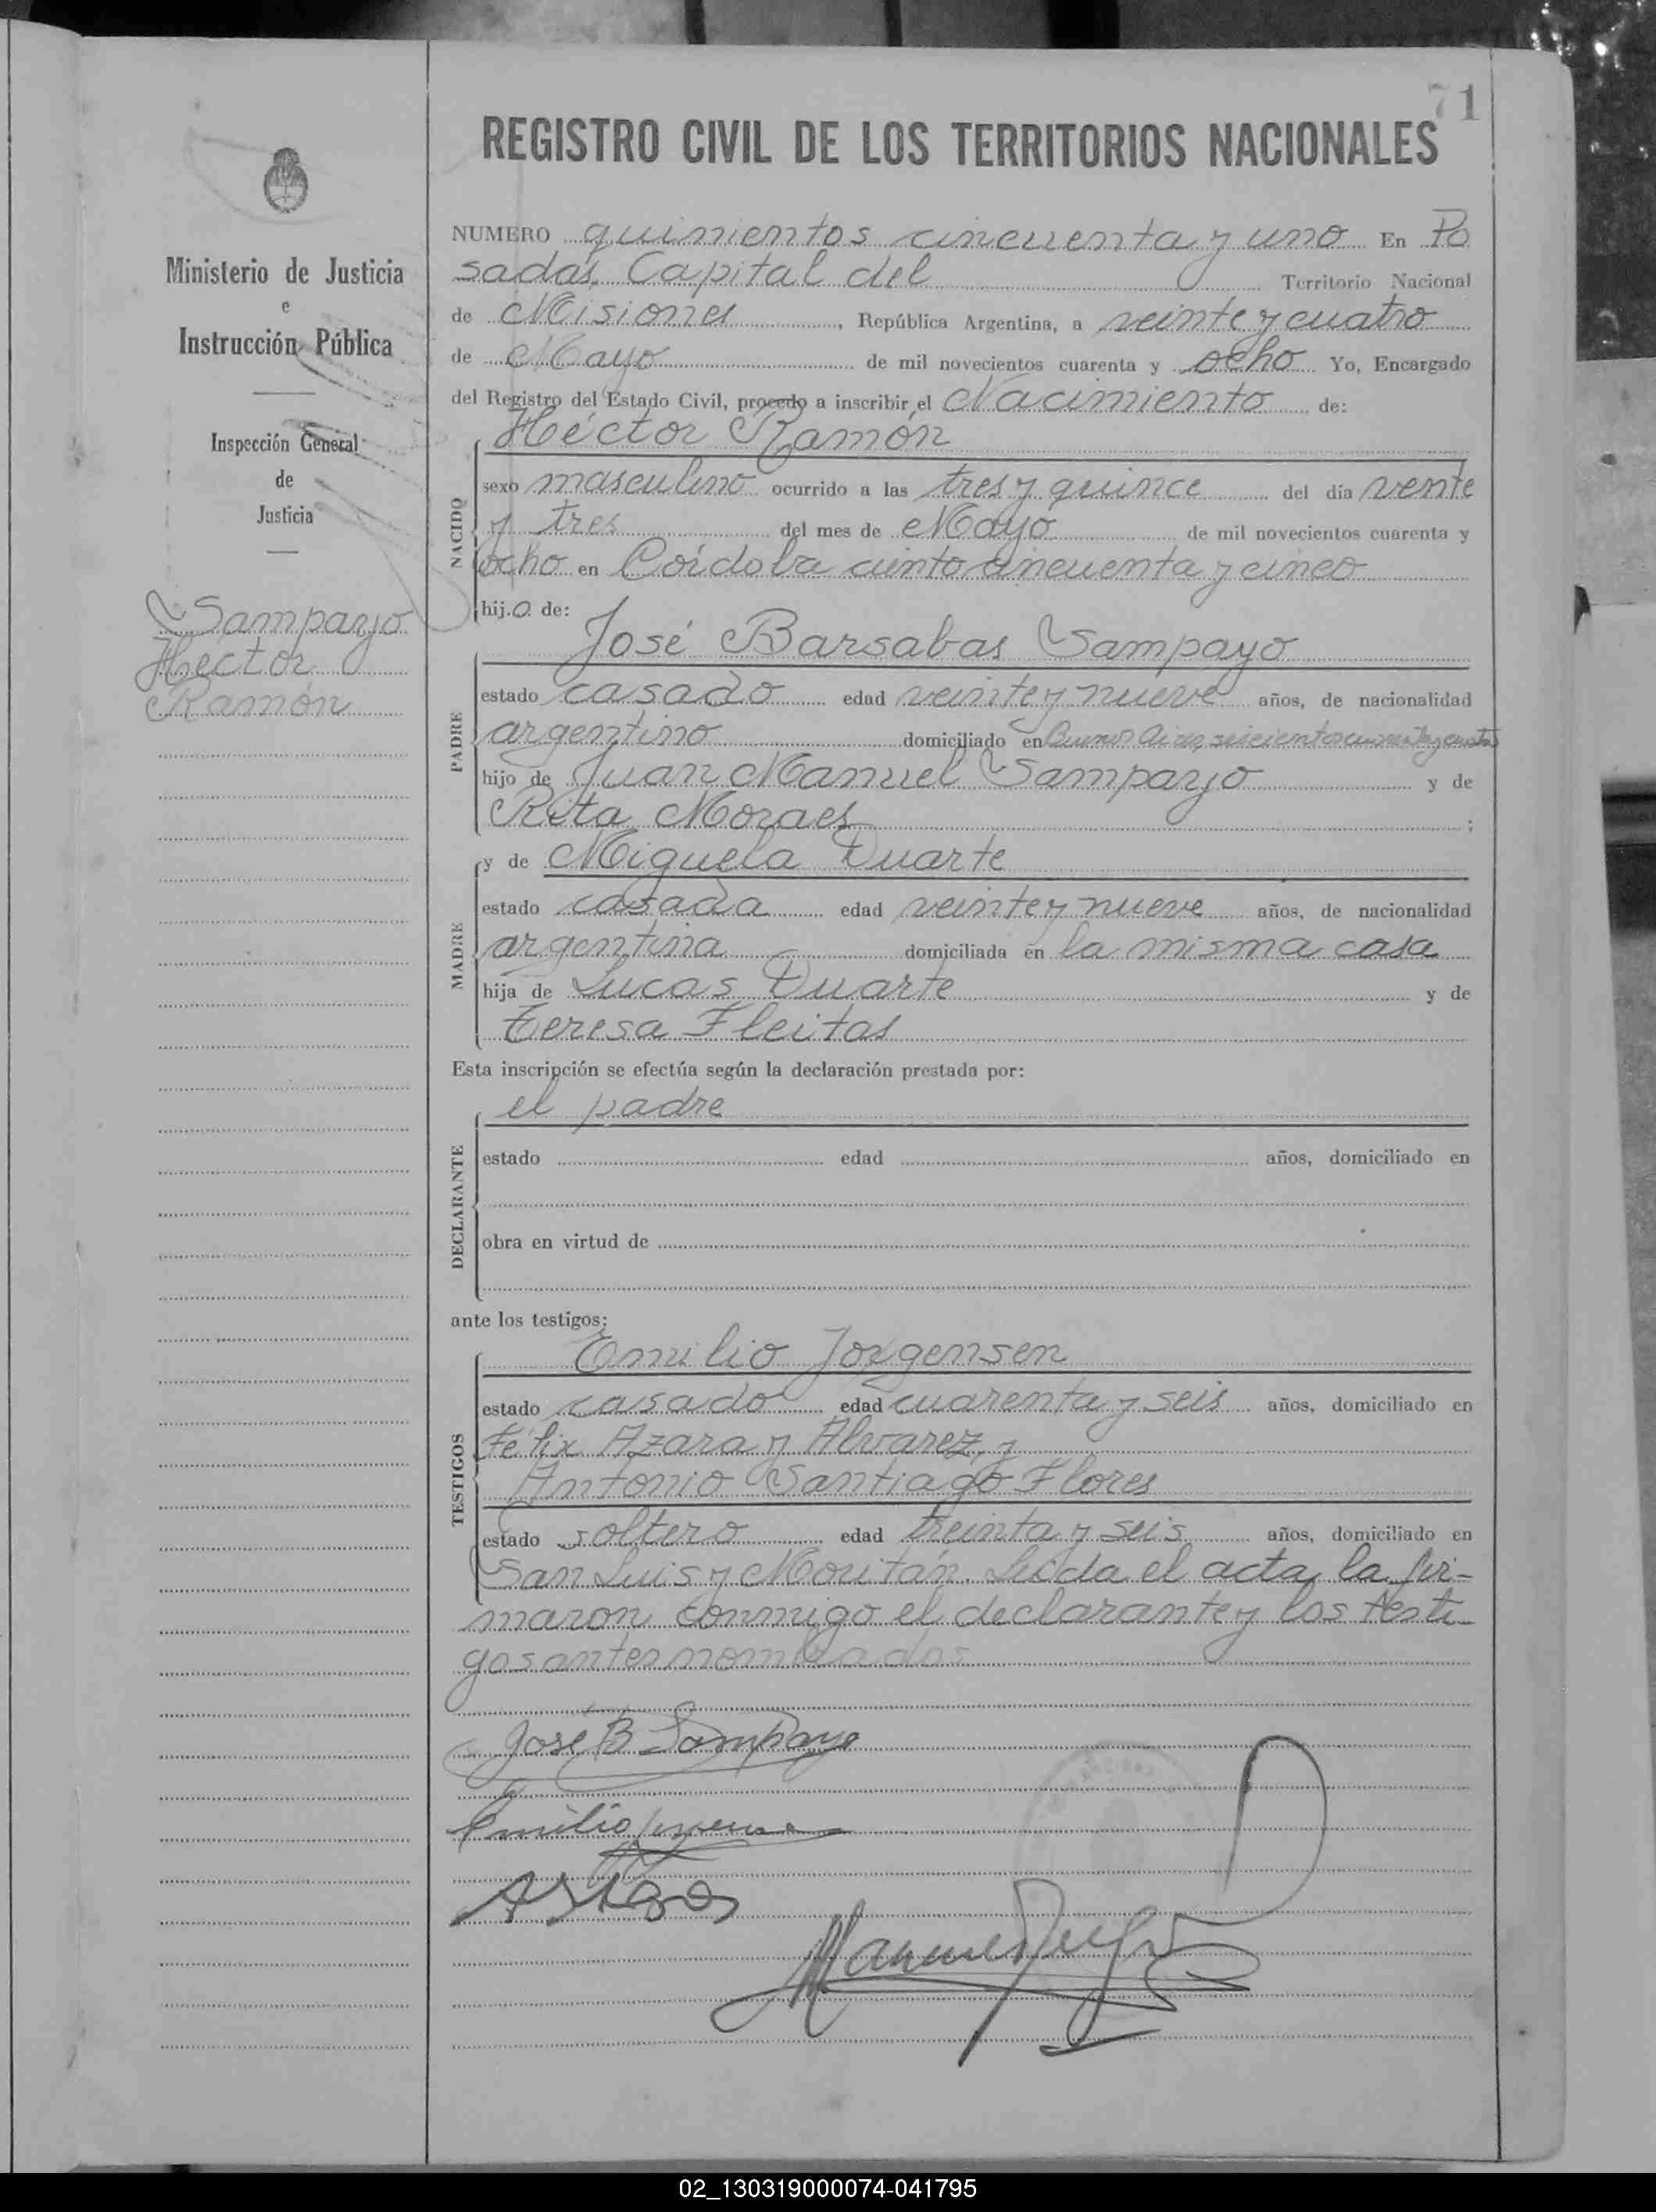 71
REGISTRO CIVIL DE LOS TERRITORIOS NACIONALES
Ministerio de Justicia
e
Instrucción Pública
Inspección General
de
Justicia
Sampayo
Héctor
Ramón
NUMERO quinientos cincuenta y uno En Po
sadas, Capital del Territorio Nacional
de Misiones, República Argentina, a veinte y cuatro
de Mayo de mil novecientos cuarenta y ocho Yo, Encargado
del Registro del Estado Civil, procedo a inscribir el Nacimiento de:
NACIDO
Héctor Ramón
sexo masculino ocurrido a las tres y quince del día vente
y tres del mes de Mayo de mil novecientos cuarenta y
ocho en Córdoba ciento cincuenta y cinco
hijo de:
PADRE
José Barsabas Sampayo
estado casado edad veinte y nueve años, de nacionalidad
argentino domiciliado en Buenos Aires seiscientos cincuenta y cuatro
hijo de Juan Manuel Sampayo y de
Rita Moraes;
MADRE
y de Miguela Duarte
estado casada edad veinte y nueve años, de nacionalidad
argentina domiciliada en la misma casa
hija de Lucas Duarte y de
Teresa Fleitas
Esta inscripción se efectúa según la declaración prestada por:
DECLARANTE
el padre
estado edad años, domiciliado en
obra en virtud de
ante los testigos:
TESTIGOS
Emilio Jorgensen
estado casado edad cuarenta y seis años, domiciliado en
Félix Azara y Alvarez, y
Antonio Santiago Flores
estado soltero edad treinta y seis años, domiciliado en
San Luis y Moritán. Leída el acta, la fir-
maron conmigo el declarante y los testi-
gos antes nombrados
José B Sampayo
Emilio
02_130319000074-041795